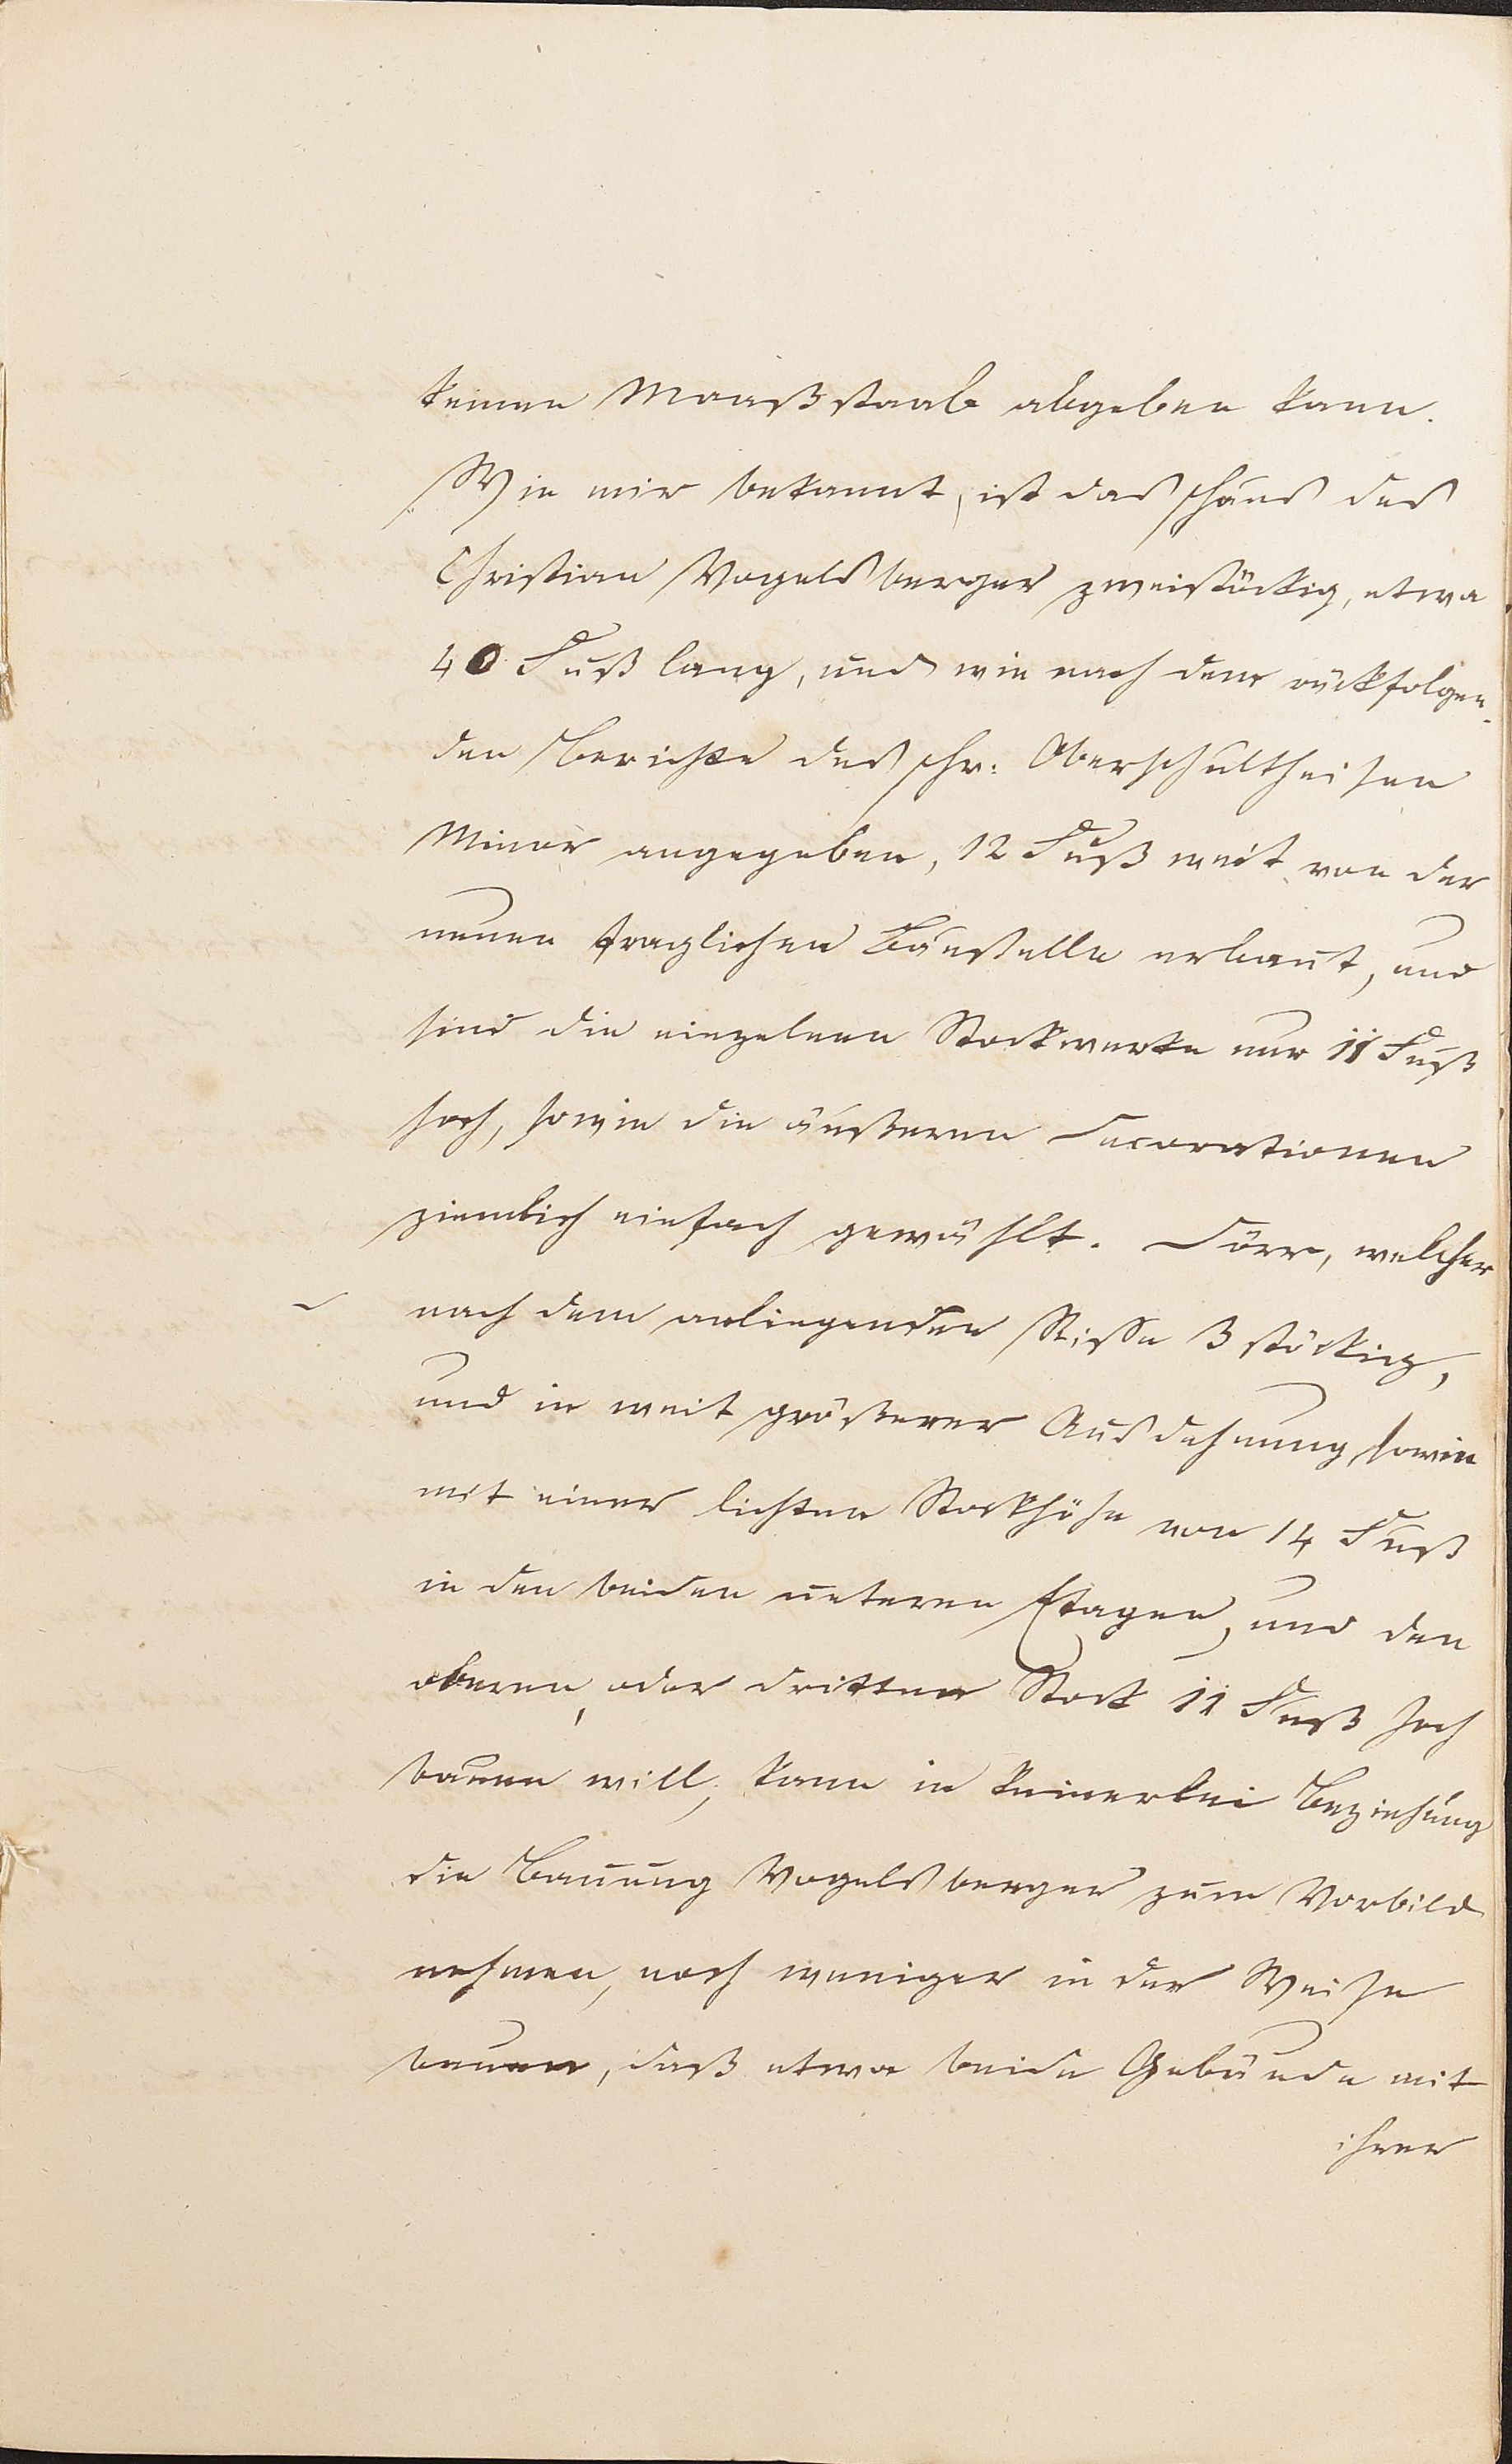 keinen Maaßstaab abgeben kann.
Wie mir bekannt, ist das Haus des
Christian Vogelsberger zweistöckig, etwa
40 Fuß lang, und wie nach dem rückfolgen-
den Berichte des Hr: Oberschultheisen
Minor angegeben, 12 Fuß weit von der
neuen fraglichen Baustelle erbaut, und
sind die einzelnen Stockwerke nur 11 Fuß
hoch, sowie die äußeren Decorationen
ziemlich einfach gewählt. Dörr, welcher
nach dem anliegenden Risse 3 stöckig,
und in weit größerer Ausdehnung, sowie
mit einer lichten Stockhöhe von 14 Fuß
in den beiden unteren Etagen, und den
oberen, oder dritten Stock 11 Fuß hoch
bauen will, kann in keinerlei Beziehung
die Bauung Vogelsberger zum Vorbild
nehmen, noch weniger in der Weise
bauen, daß etwa beide Gebäude mit
ihrer